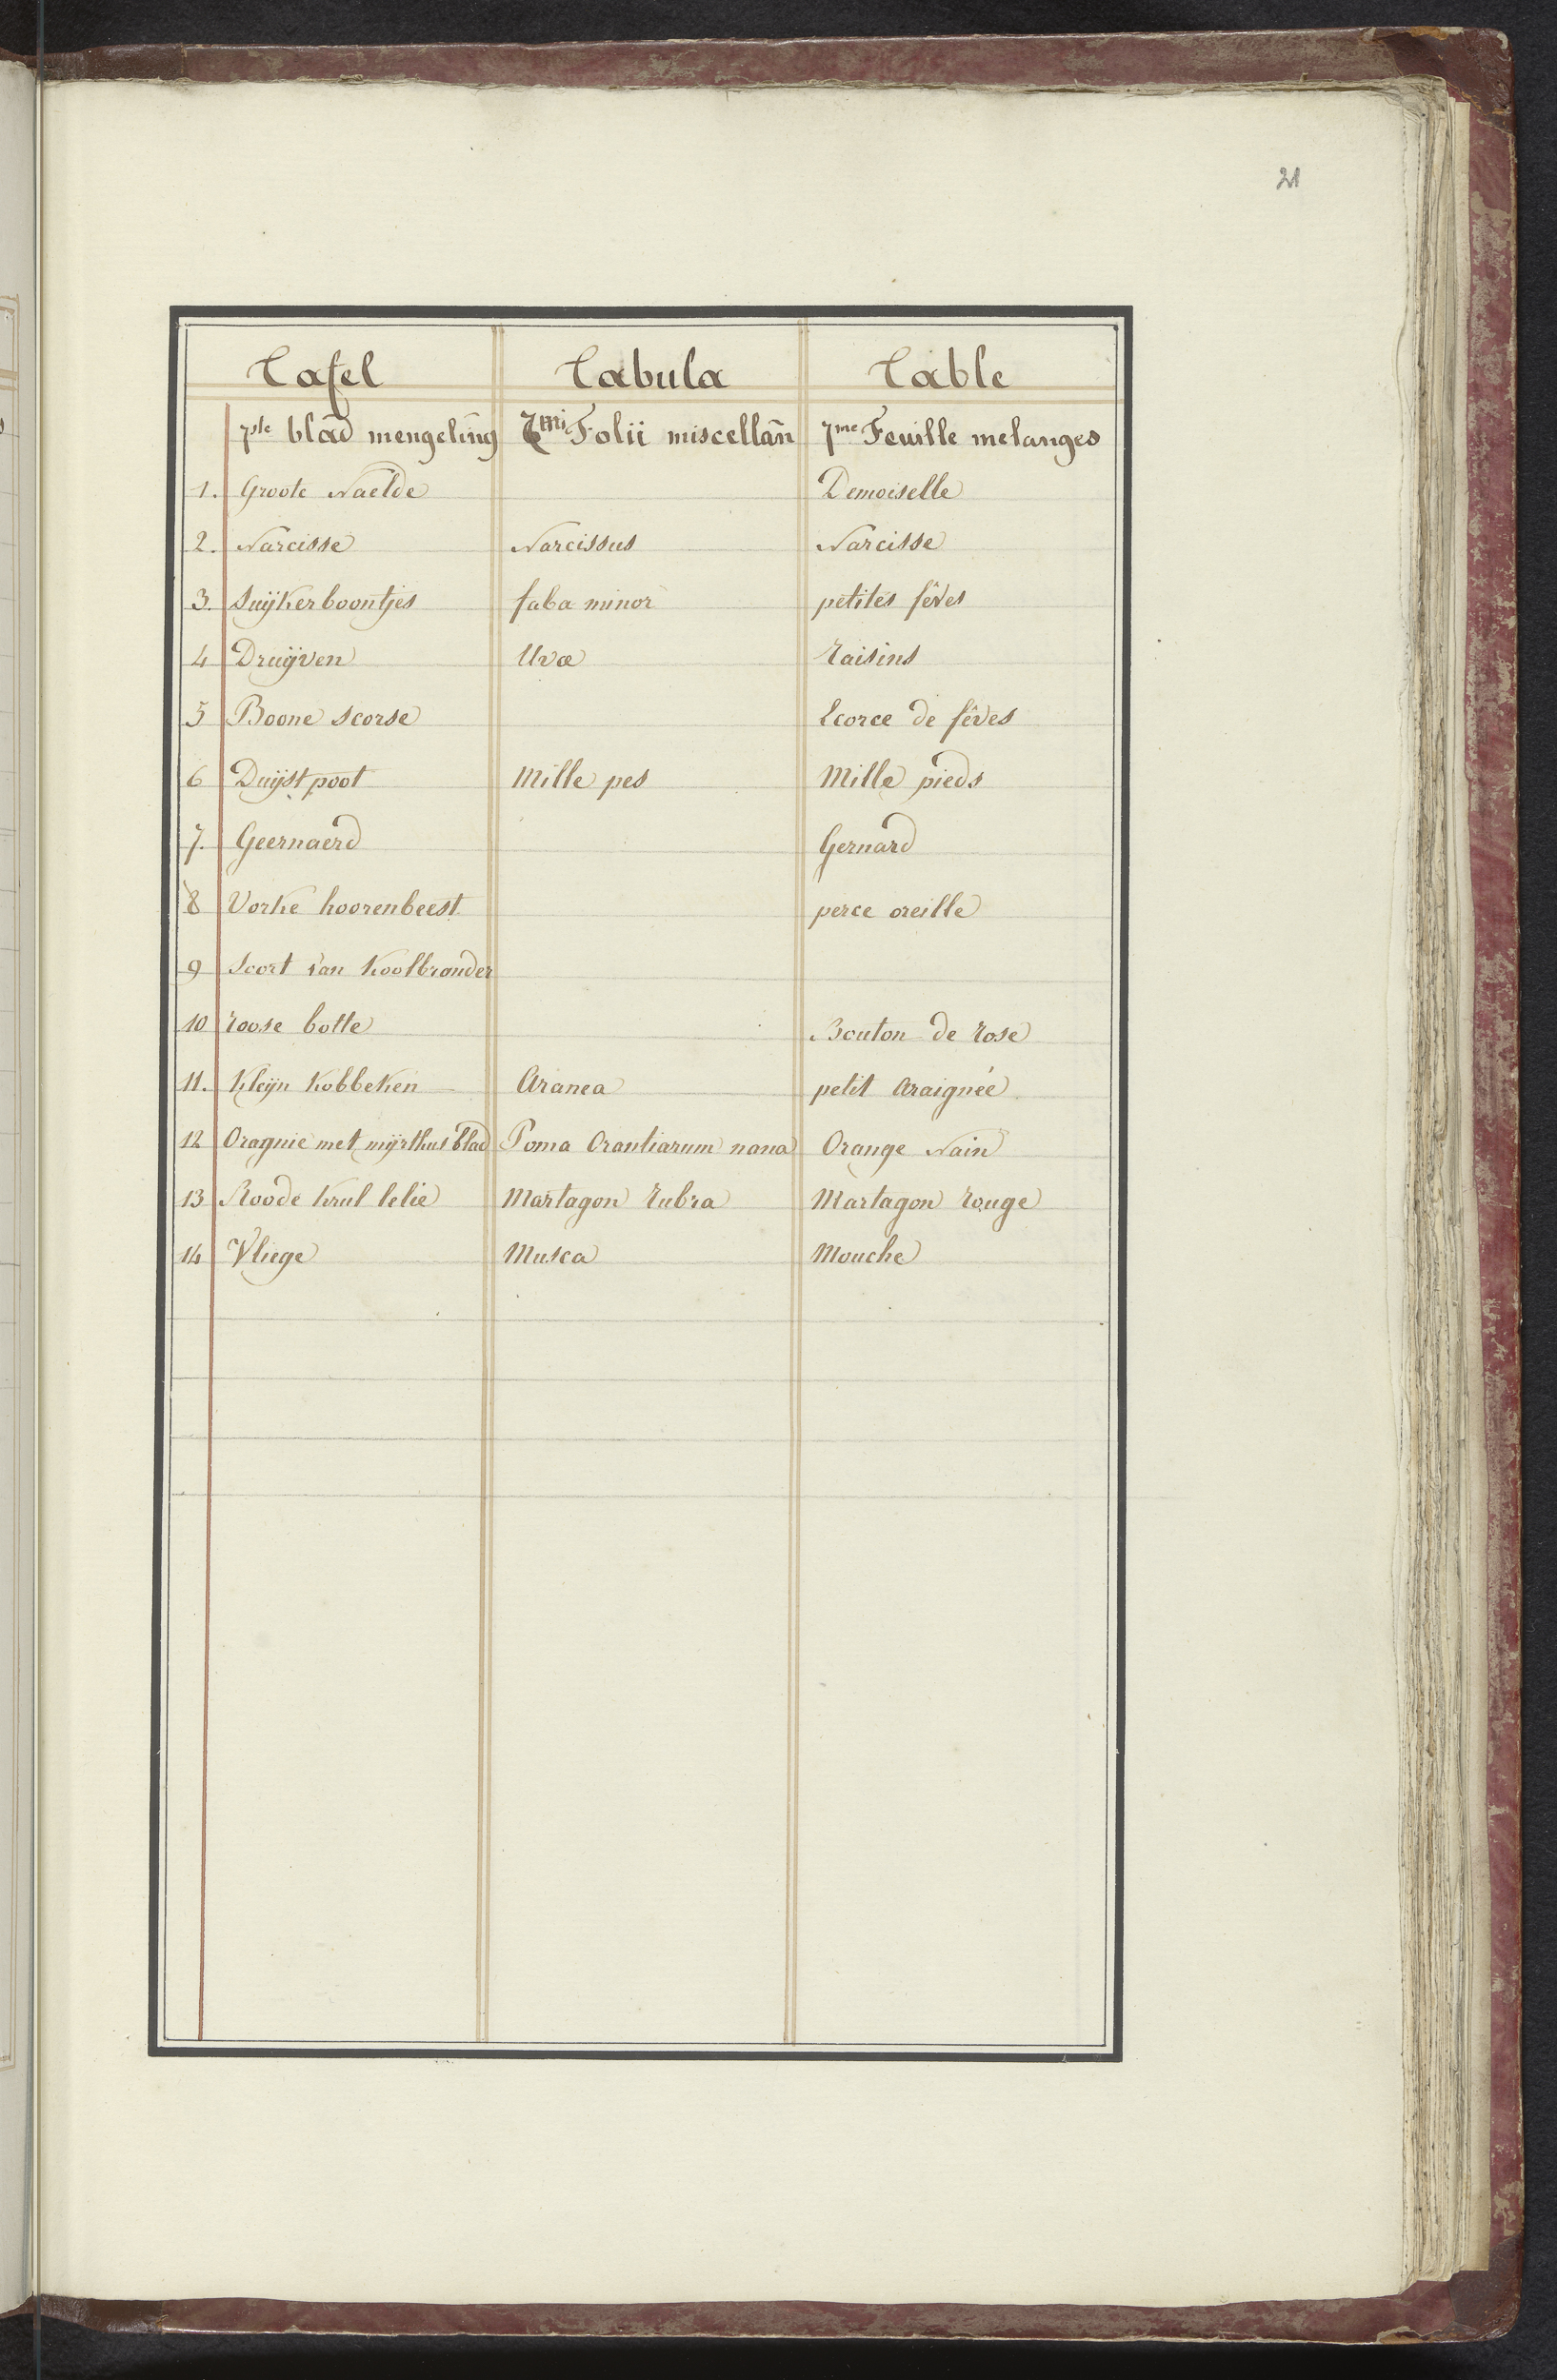 21
Tafel Tabula Table
7ste blad mengeling 7mi Folii miscellan 7me Feuille melanges
1. Groote Naelde Demoiselle
2. Narcisse Narcissus Narcisse
3. Suÿkerboontjes faba minor petites fêves
4 Druÿven Uvæ Raisins
5 Boone scorse Ecorce de fêves
6 Duÿst poot Mille pes Mille pieds
7. Geernaerd Gernard
8 Vorke hoorenbeest perce oreille
9 Soort van Koolbrander
10 roose botte Bouton de Rose
11. Kleÿn Kobbeken Aranea petit Araignée
12 Oragnie met mÿrthus blad Poma Orantiarum nana Orange Nain
13 Roode Krul lelie Martagon Rubra Martagon Rouge
14 Vliege Musca Mouche